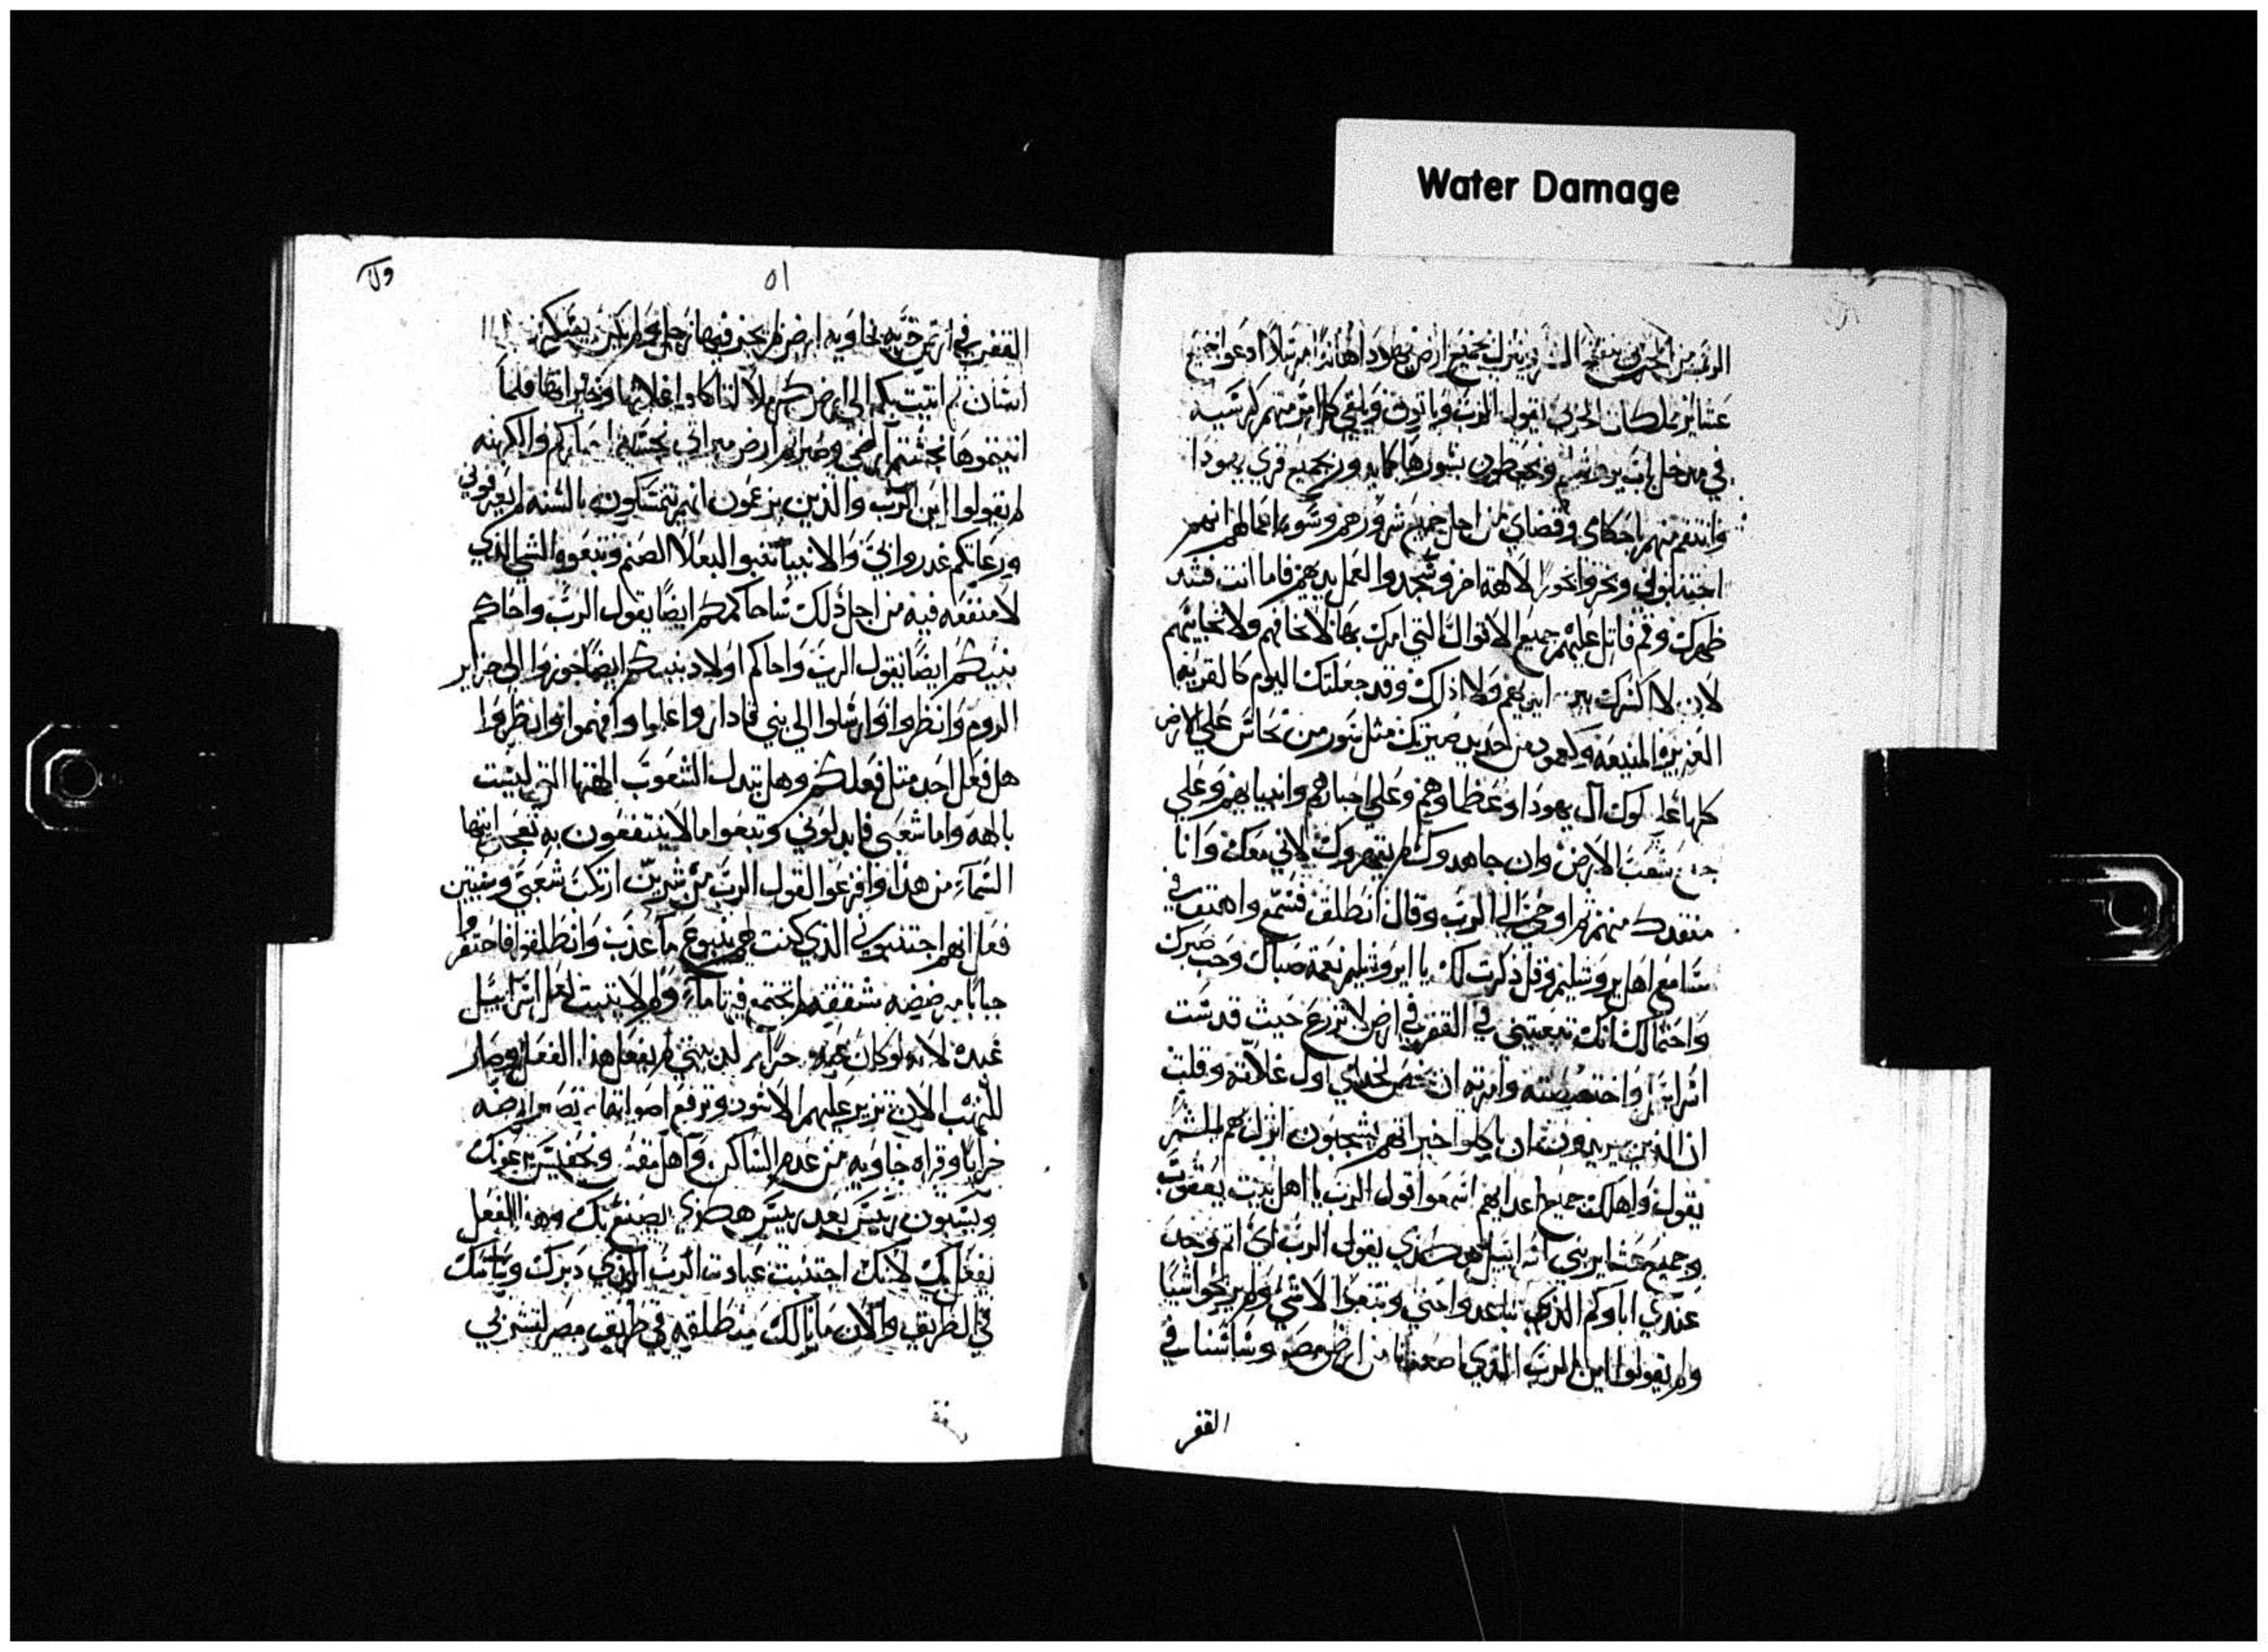 Water Damage
الرب من الجربي ينفتح الشر وينزل بجميع ارض يهودا هانذا مرسلا ادعوا جميع
عشاير ملكان الجربي يقول الرب وياتون ويلقي كل امر منهم كرسيه
في مدخل باب يروشليم ويحيطون بسورها كما يدور بجميع قري يهودا
وانتقم منهم باحكامي وقضاي من اجل جميع شرورهم وسوء اعمالهم انهم
اجتنبوني وبخروا بخورا لالهة اخر وسجدوا لعمل يديهم فاما انت فشد
ظهرك وقم فاتل عليهم جميع الاقوال التي امرك بها لا تخافهم ولا تحابيهم
لان لا اكسرك بين ايديهم ولا اذلك وقد جعلتك اليوم كالقرية
العزيزة المنيعة وكعمود من حديد صيرتك مثل سور من نحاس علي الارض
كلها علي ملوك آل يهودا وعظماوهم وعلي احبارهم وانبيايهم وعلي
جميع شعب الارض وان جاهدوك لم يقهروك لاني معك وانا
منقدك منهم ثم اوحي الي الرب وقال انطلق فسمع واهتف في
مسامع اهل يروشليم وقل ذكرت لك يا ايروشليم نعمة صباك وحب صبرك
واحتمالك انك تبعتيني في القفر في ارض لا تزرع حيث قدست
اسراييل واختصصته وامرته ان يحمل لحداي اول غلاته وقلت
ان الذين يريدون ان ياكلوا خيراتهم يشجبون انزل بهم الشر
يقول واهلكت جميع اعدايهم اسمعوا قول الرب يا اهل بيت يعقوب
وجميع عشاير بني اسراييل هكذي يقول الرب اي اثم وجد
عندي اباوكم الذين تباعدوا عني وتبعوا لاشي ولم يربحوا شيا
ولم يقولوا اين الرب الذي اصعدنا من ارض مصر وساسنا في
القفر
٥١
القفر في ارض خربه خاويه ارض لم يجز فيها رجل ولم يكن يسكن
انسان ثم اتيت بكم الي ارض كرملا لتاكلوا غلاتها وخيراتها فلما
اتيتموها نجستم ارضي وصيرتم ارض ميراتي نجسه احباركم والكهنه
لم يقولوا اين الرب والذين يزعمون انهم يتمسكون بالسنه لم يعرفوني
ورعاتكم غدروا بي والانبيا تنبوا لبعلا الصنم وتبعوا الشي الذي
لا منفعه فيه من اجل ذلك ساحاكمكم ايضا يقول الرب واحاكم
بنيكم ايضا يقول الرب واحاكم اولاد بنيكم ايضا جوزوا الي جزاير
الروم وانظروا وارسلوا الي بني قادار واعلموا وافهموا وانظروا
هل فعل احد مثل فعلكم وهل تبدل الشعوب الهتها التي ليست
بالهه واما شعبي فابدلوني وتبعوا ما لا ينتفعون به تعجبي ايتها
السماء من هذا وافزعوا لقول الرب من شرين ارتكب شعبي وسيتين
فعل انهم اجتنبوني الذي كنت لهم ينبوع ما عذب وانطلقوا فاحتفروا
جبابا مرضضه مشققه لم تجتمع فيها ماء ولم لا يتبت لعل اسراييل
عبد لانه لو كان عبدي حرا بر لبيتي لم يفعل هذا الفعل وصار
للنهب الان تزير عليهم الاسود وترفع اصواتها تصير ارضه
خرابا وقراه خاويه من عدم الساكن واهل منف وتحفيس يرعونك
ويسبون رييس بعد رييس هكذي يصنع بك وهذا الفعل
يفعل بك لانك اجتنبت عبادت الرب الذي دبرك وساسك
في الطريق والان ما بالك منطلقه في طريق مصر لتشربي